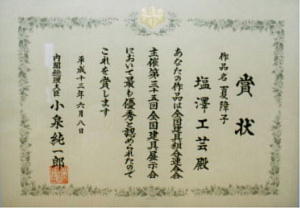 賞状
作品名 夏障子
塩澤工芸殿
あなたの作品は全国建具組合連合会
主催第三十五回全国建具展示会
において最も優秀と認められたので
これを賞します
平成十三年六月八日
内閣総理大臣 小泉純一郎